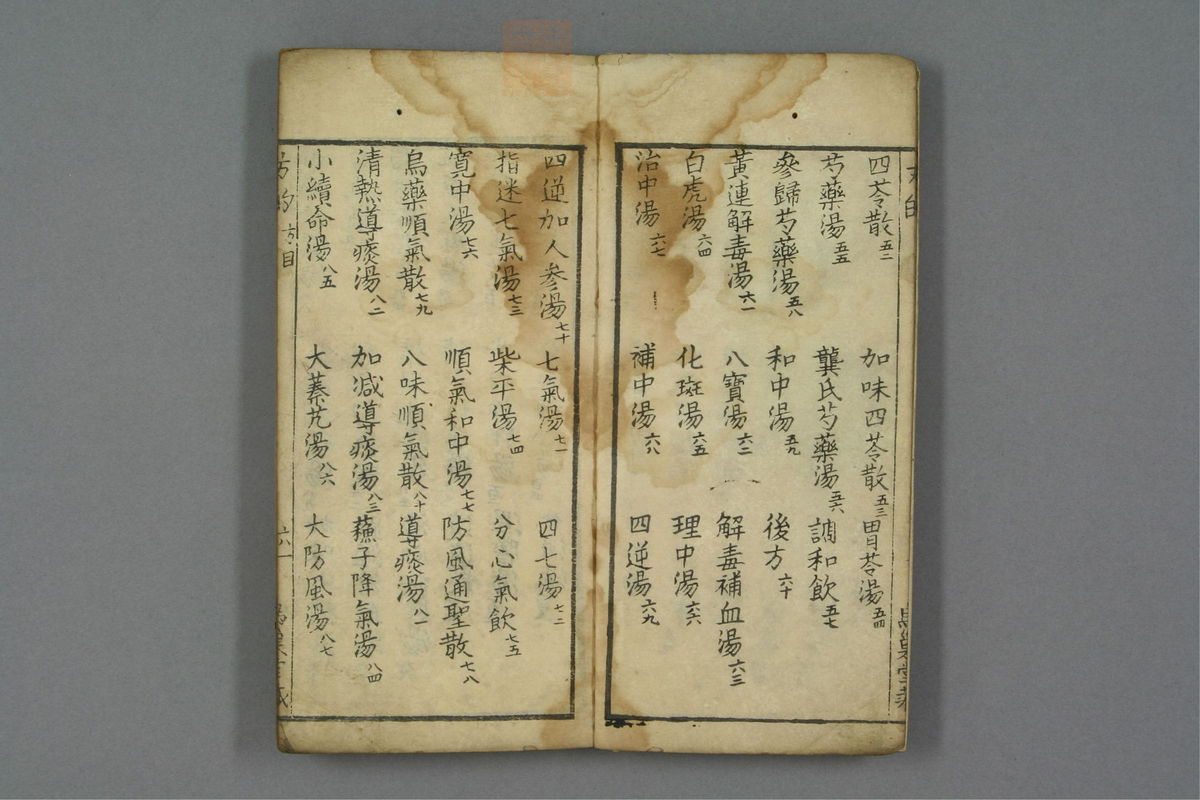 四苓散五二 加味四苓散五三 胃苓湯五四
芍藥湯五五 龔氏芍藥湯五六 調和飲五七
參歸芍藥湯五八 和中湯五九 後方六十
黃連解毒湯六一 八寶湯六二 解毒補血湯六三
白虎湯六四 化斑湯六五 理中湯六六
治中湯六七 補中湯六八 四逆湯六九
四逆加人參湯七十 七氣湯七一 四七湯七二
指迷七氣湯七三 柴平湯七四 分心氣飲七五
寬中湯七六 順氣和中湯七七 防風通聖散七八
烏藥順氣散七九 八味順氣散八十 導痰湯八一
清熱導痰湯八二 加減導痰湯八三 蘓子降氣湯八四
小續命湯八五 大蓁艽湯八六 大防風湯八七